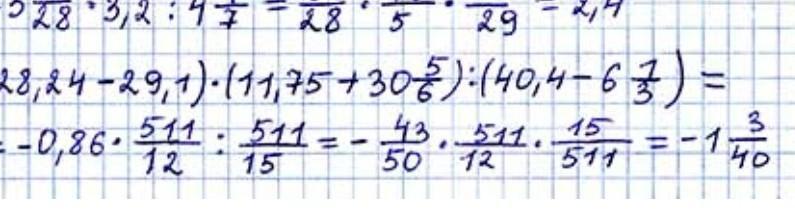 28 · 3,2 : 4 1/7 = /28 · /5 · /29 = 2,4
28,24 - 29,1) · (11,75 + 30 5/6) : (40,4 - 6 1/3) =
= -0,86 · 511/12 : 511/15 = - 43/50 · 511/12 · 15/511 = -1 3/40